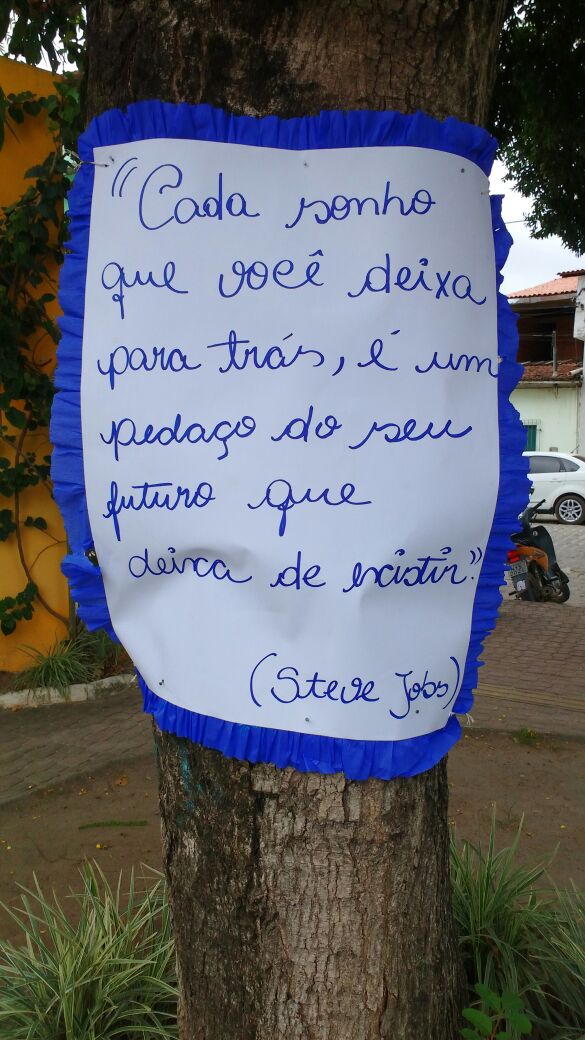 "Cada sonho
que você deixa
para trás, é um
pedaço do seu
futuro que
deixa de existir."
(Steve Jobs)